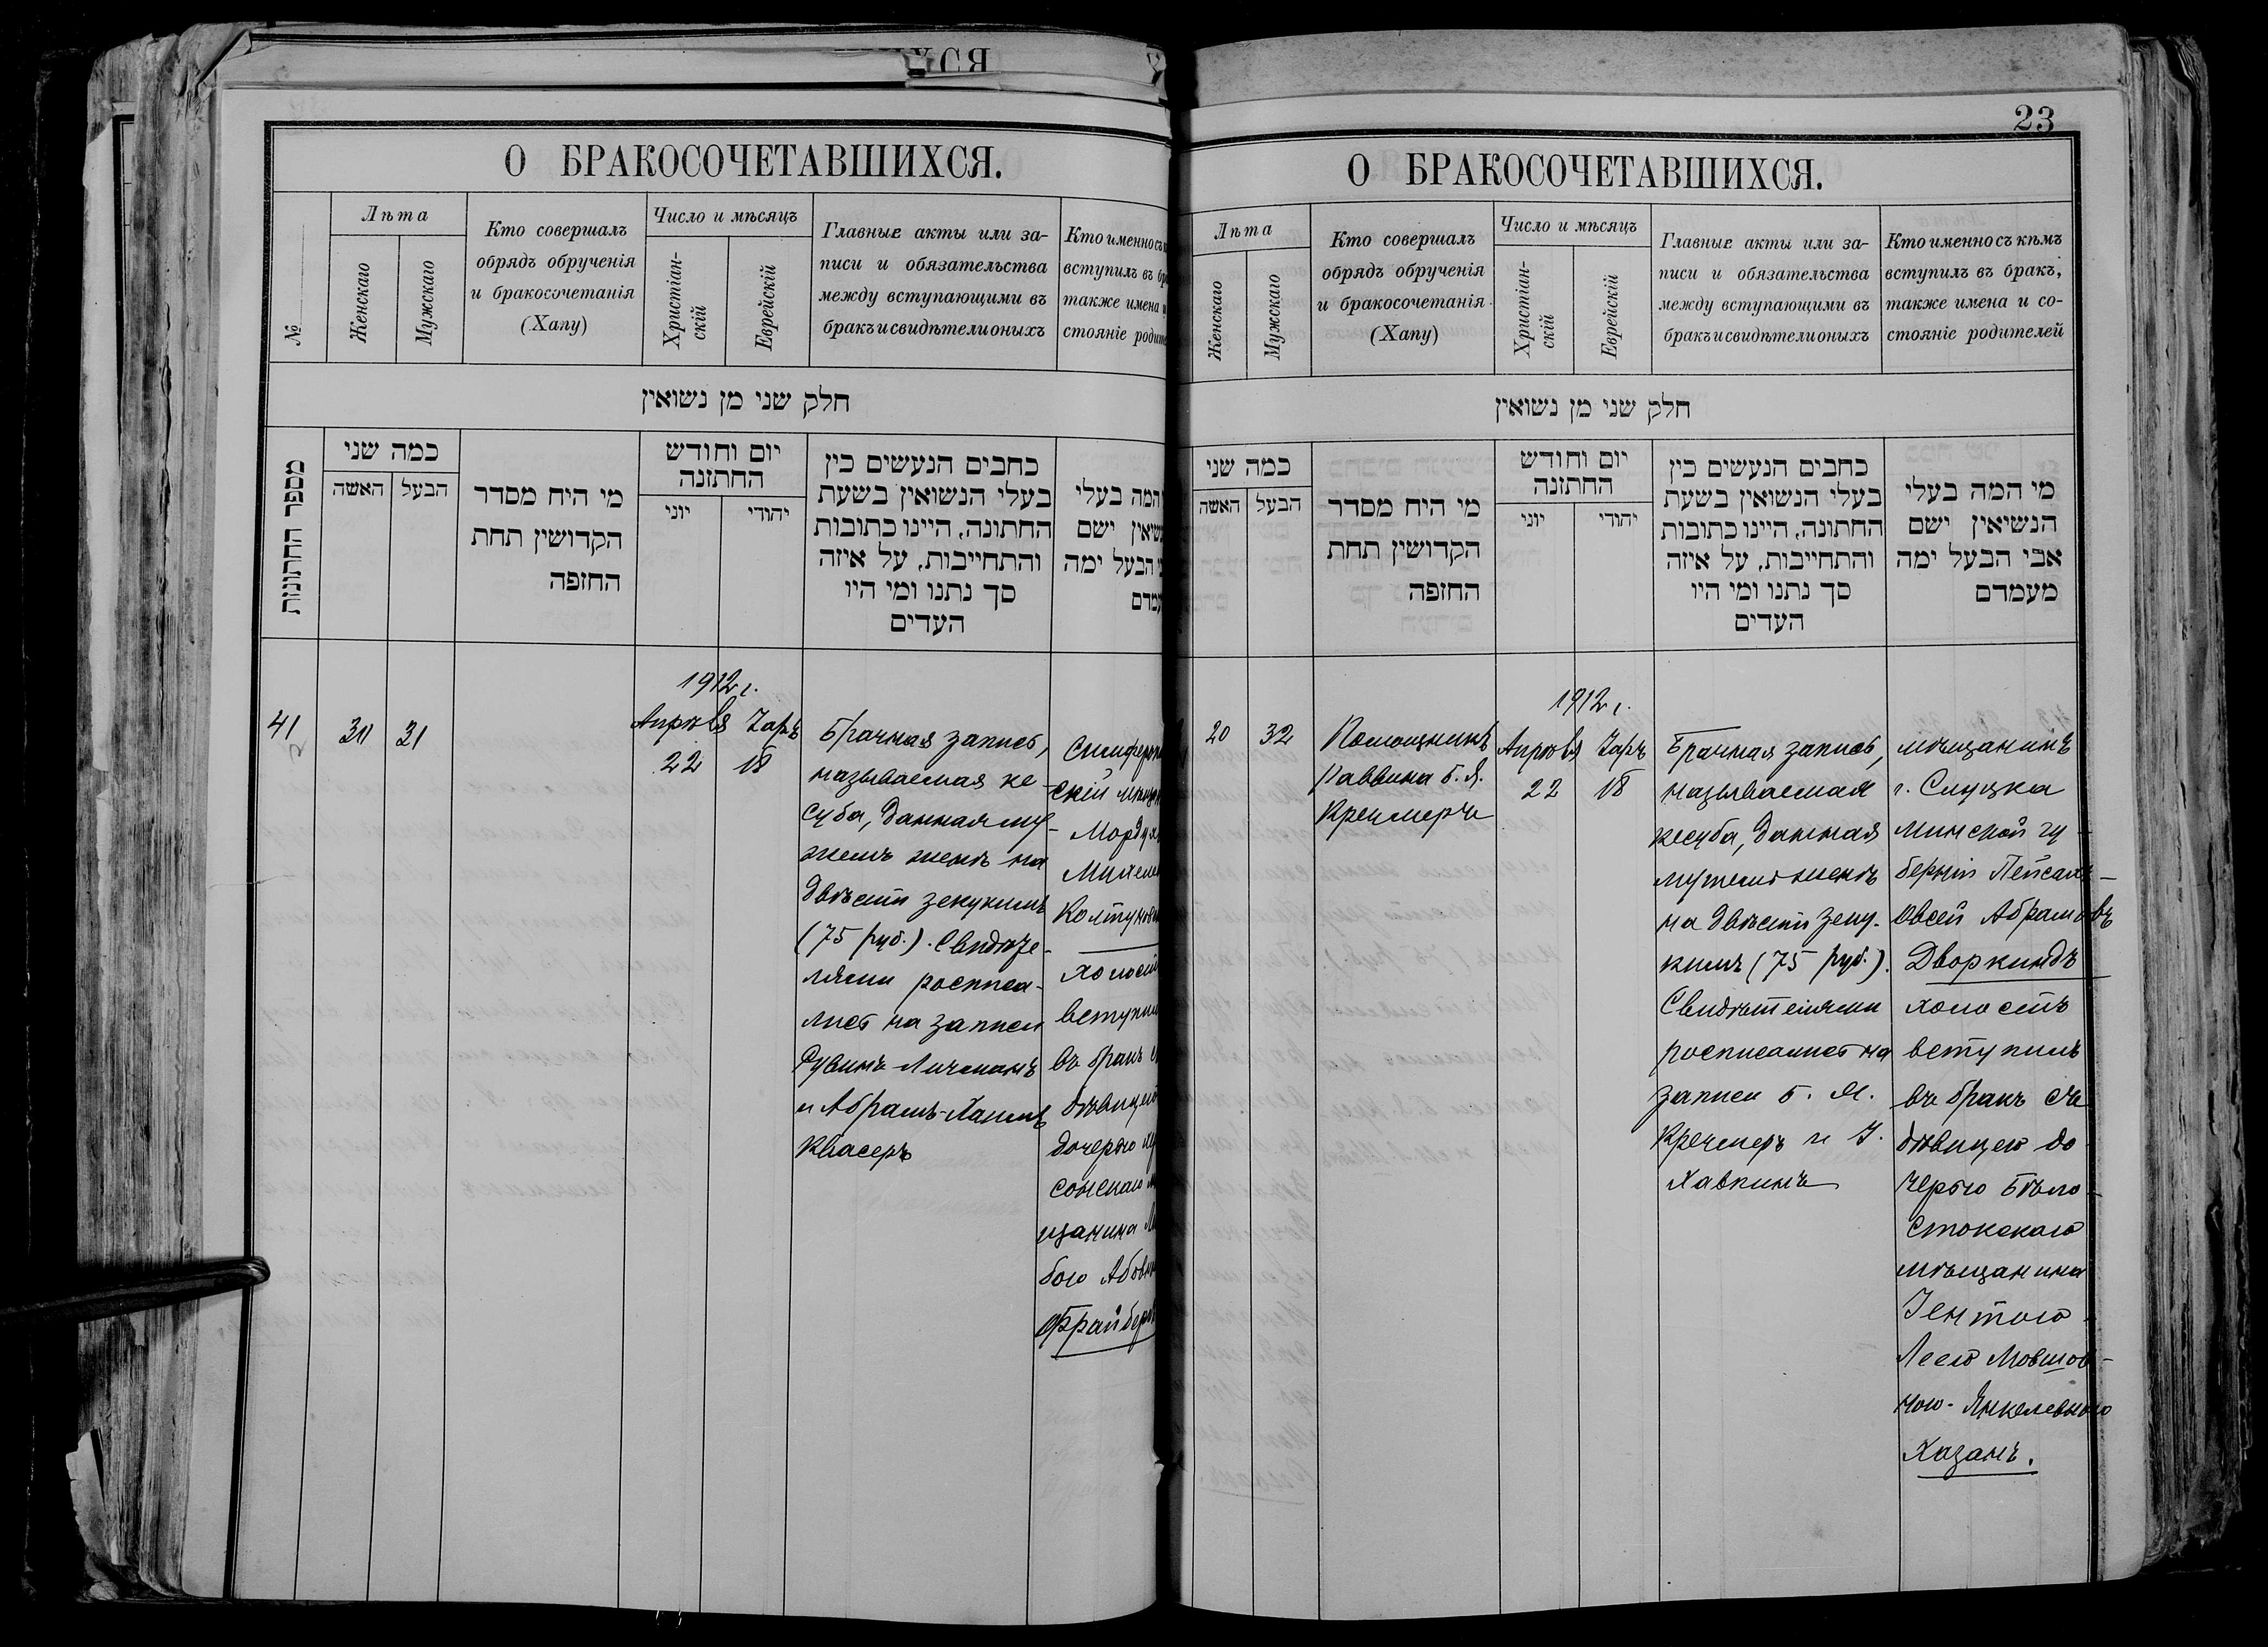 ХСЯ
О БРАКОСОЧЕТАВШИХСЯ.
№
Лѣта
Женскаго
Мужскаго
Кто совершалъ
обрядъ обрученія
и бракосочетанія
(Хапу)
Число и мѣсяцъ
Христіан-
скій
Еврейскій
Главные акты или за-
писи и обязательства
между вступающими въ
бракъ и свидѣтели оныхъ
Кто именно съ
вступилъ въ
также имена
стояніе
חלק שני מן נשואין
מספר החתונות
כמה שני
האשה
הבעל
מי היח מסדר
הקדושין תחת
החופה
יום וחודש
החתונה
יוני
יהודי
כתבים הנעשים בין
בעלי הנשואין בשעת
החתונה, היינו כתובות
והתחייבות, על איזה
סך נתנו ומי היו
העדים
המה בעלי
ישם
הבעל ימה
41
31
31
1912 г.
Апрѣля
22
18
Брачная запись,
называемая ке-
суба, данная му-
жемъ женѣ на
двѣсти зекукимъ
(75 руб.). Свидѣте-
лями росписа-
лись на записи
Рувинъ Личманъ
и Абрамъ-Хаимъ
Квасеръ
скій
вступилъ
въ бракъ
дѣвицей
дочерью
сонскаго
щанина
бою
23
О БРАКОСОЧЕТАВШИХСЯ.
Лѣта
Женскаго
Мужскаго
Кто совершалъ
обрядъ обрученія
и бракосочетанія
(Хапу)
Число и мѣсяцъ
Христіан-
скій
Еврейскій
Главные акты или за-
писи и обязательства
между вступающими въ
бракъ и свидѣтели оныхъ
Кто именно съ кѣмъ
вступилъ въ бракъ,
также имена и со-
стояніе родителей
חלק שני מן נשואין
כמה שני
האשה
הבעל
מי היח מסדר
הקדושין תחת
החופה
יום וחודש
החתונה
יוני
יהודי
כתבים הנעשים בין
בעלי הנשואין בשעת
החתונה, היינו כתובות
והתחייבות, על איזה
סך נתנו ומי היו
העדים
מי המה בעלי
הנשיאין ישם
אבי הבעל ימה
מעמדם
20
32
Помощникъ
Раввина Б. Я.
Кречмеръ
1912 г.
Апрѣля
22
18
Брачная запись,
называемая
кесуба, данная
мужемъ женѣ
на двѣсти зеку-
кимъ (75 руб.).
Свидѣтелями
росписались на
записи Б. Я.
Кречмеръ и І.
Хавкинъ
мѣщанинъ
г. Слуцка
Минской гу-
берніи Пейсахъ-
Овсей Абрамовъ
Дворкиндъ
холостъ
вступилъ
въ бракъ съ
дѣвицею до-
черью Бѣло-
стокскаго
мѣщанина
Леею Мовшов-
ною-Янкелевною
Хазанъ.